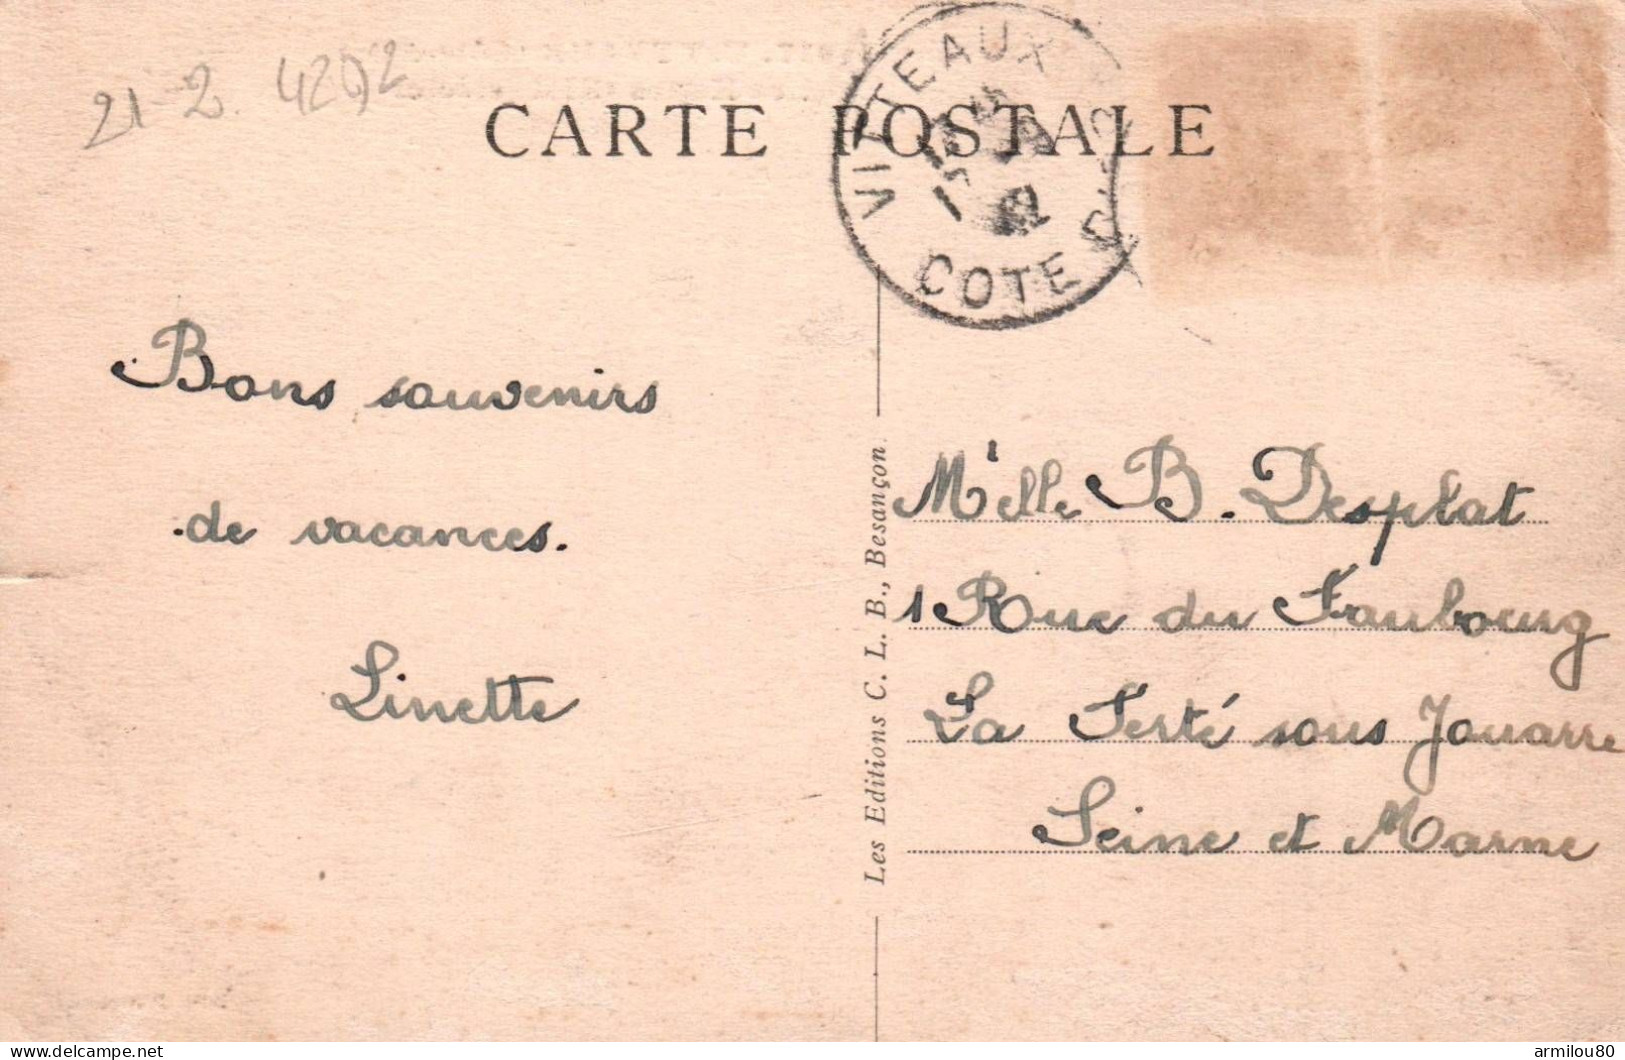 21-2. 4292
CARTE POSTALE
VITTEAUX
COTE
Bons souvenirs
de vacances.
Linette
Les Editions C. L. B., Besançon
M'elle B. Desplat
1 Rue du Faubourg
La Ferté sous Jouarre
Seine et Marne
armilou80